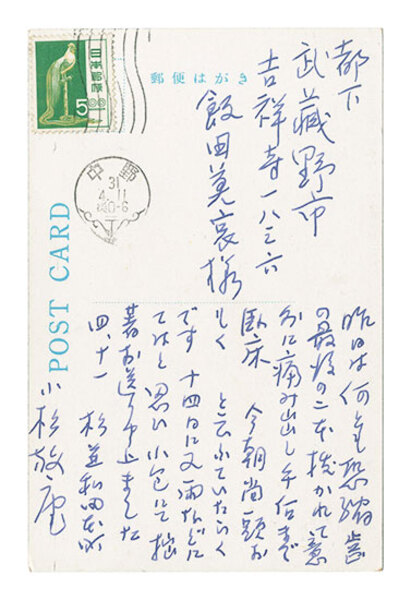 都下
武蔵野市
吉祥寺一八三六
飯田莫哀様
郵便はがき
日本郵便
500
中野
31
4.11
POST CARD
昨日は何も恐縮 歯
の最後の二本抜かれて意
外に痛み出し午后まで
臥床 今朝尚一類お
しく とこふていたらく
です 十四日に又雨などに
てはと思ひ小包にて拙
著お送り申上ました
四、十一
杉並和田本町
小杉放庵